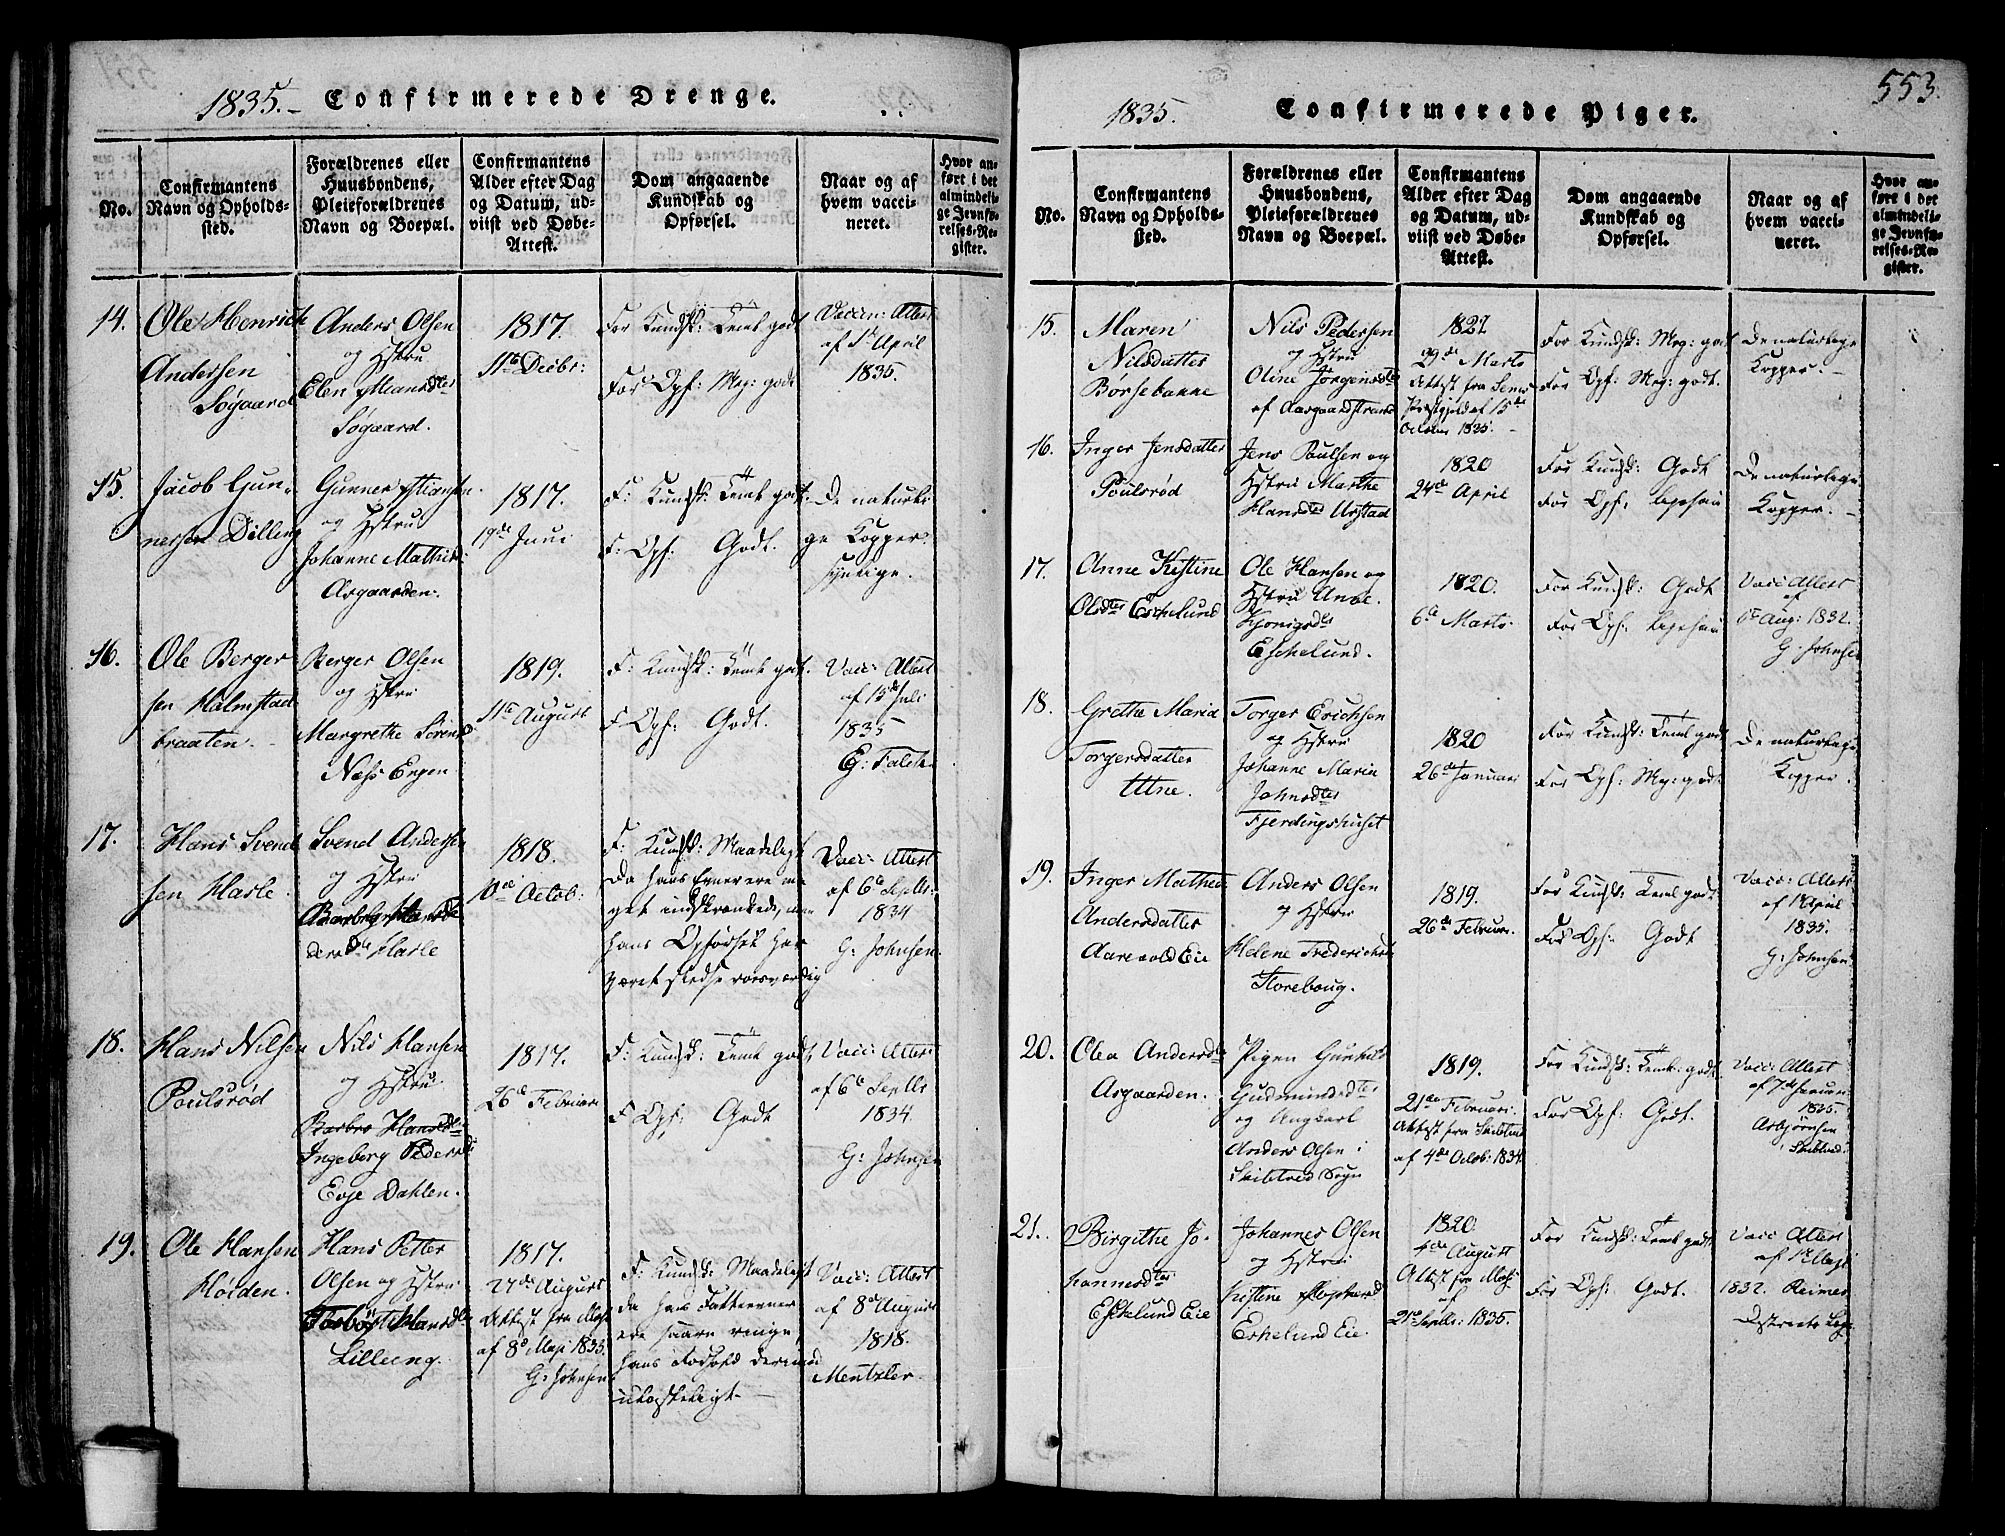 1835.- Confirmerede Drenge.
No.
Confirmantens
Navn og Opholds-
sted.
Forældrenes eller
Huusbondens,
Pleieforældrenes
Navn og Boepæl.
Confirmantens
Alder efter Dag
og Datum, ud-
viist ved Døbe-
Attest.
Dom angaaende
Kundskab og
Opførsel.
Naar og af
hvem vacci-
neret.
Hvor an-
ført i det
almindeli-
ge Jevnfø-
relses-Re-
gister.
14.
Ole Henrich
Andersen
Søgaard
Anders Olsen
og Hstru
Elen
Søgaard.
1817.
11te Decbr:
For Kundsk: Teml. godt
For Opf: Meg: godt
Vaccn: Attest
af 1te April
1835.
15.
Jacob Gun-
nersen Dilling
Gunner
og Hstru
Johanne Mathis:
Asgaarden.
1817.
19de Juni
F: Kundsk: Teml. godt.
F: Opf: Godt.
De naturli
ge Kopper
synlige.
16.
Ole Berger
sen Halmstad
braaten.
Berger Olsen
og Hstru
Margrethe Sørens
Næss Engen
1819.
11te August
F: Kundsk: Teml. godt.
F. Opf: Godt.
Vacc: Attest
af 15de Juli
1835
G: Falch
17.
Hans Svend
sen Karle.
Svend Andersen
og Hstru
Karle
1818.
10de Octob:
F: Kundsk: Maadeligt
Da hans Evner ere me
get indskrænkede, men
hans Opførsel har
været stedse roesværdig
Vacc: Attest
af 6te Septbr:
1834
G: Johnsen.
18.
Hans Nilsen
Poulsrød
Nils Hansen
og Hstru
Barbro Hansdtr
Ingeborg Peders
Evje Dahlen.
1817.
26de Februari
F: Kundsk: Teml. godt
F. Opf: Godt
Vacc: Attest
af 6te Septbr
1834
G: Johnsen
19.
Ole Hansen
Høiden.
Hans Petter
Olsen og Hstru
Hansdtr
Lilleeng.
1817.
27de August
Attest fra Moss
af 8de Maji 1835.
G: Johnsen
F. Kundsk: Maadeligt
da hans Fatteevner
ere saare ringe,
hans Forhold derimod
ulasteligt.
Vacc: Attest
af 8de August
1818.
Mentzler.
553.
1835. Confirmerede Piger.
No.
Confirmantens
Navn og Opholds-
sted.
Forældrenes eller
Huusbondens,
Pleieforældrenes
Navn og Boepæl.
Confirmantens
Alder efter Dag
og Datum, ud-
viist ved Døbe-
Attest.
Dom angaaende
Kundskab og
Opførsel.
Naar og af
hvem vacci-
neret.
Hvor an-
ført i det
almindeli-
ge Jevnfø-
relses-Re-
gister.
15.
Maren
Nilsdatter
Børsebanne
Nils Pedersen
og Hstru
Oline Jørgensdtr
af Aasgaardstrand
1821
29de Marts
Attest fra Sems
Præstgjeld af 15de
October 1835.
For Kundsk: Meg: godt
For Opf: Meg: godt.
De naturlige
Kopper.
16.
Inger Jensdatter
Poulsrød
Jens Poulsen og
Hstru Marthe
Hansdtr Urstad
1820
24de April
For Kundsk: Godt
For Opf:
De naturlige
Kopper.
17.
Anne Kistine
Olsdtr Eschelund
Ole Hansen og
Hstru Anne
Eschelund.
1820.
6te Marts.
For Kundsk: Godt
For Opf:
Vacc: Attest
af
6te Aug: 1832.
G: Johnsen
18.
Grethe Maria
Torgersdatter
Utne.
Torger Erichsen
og Hstru
Johanne Maria
Johnsdtr
Fjerdingshuset
1820
26de Januari
For Kundsk: Teml. godt
For Opf: Meg: godt.
De naturlige
Kopper.
19.
Inger Mathea
Andersdatter
Aarevold Eie
Anders Olsen
og Hstru
Helene Frederichs
Storehoug.
1819.
26de Februari.
For Kundsk: Teml. godt.
For Opf: Godt
Vacc: Attest
af 1te April
1835.
G: Johnsen
20.
Olea Andersdtr
Asgaarden.
Pigen Gunhild
Gudmundsdtr
og Ungkarl
Anders Olsen i
Skibtved Sogn
1819.
21de Februari.
Attest fra Skibtved
af 4de Octob: 1834
For Kundsk: Teml. godt.
For Opf: Godt.
Vacc: Attest
af 7de Januari
1835.
Asbjørnsen
Skibtved
21.
Birgithe Jo-
hannesdtr
Eschelund Eie
Johannes Olsen
og Hstru
Kistine
Eskelund Eie.
1820
4de August
Attest fra Moss
af
21de Septbr: 1835.
For Kundsk: Teml. godt
For Opf: Godt.
Vacc: Attest
af 1te Maji
1832. Reimers
Districts Læge